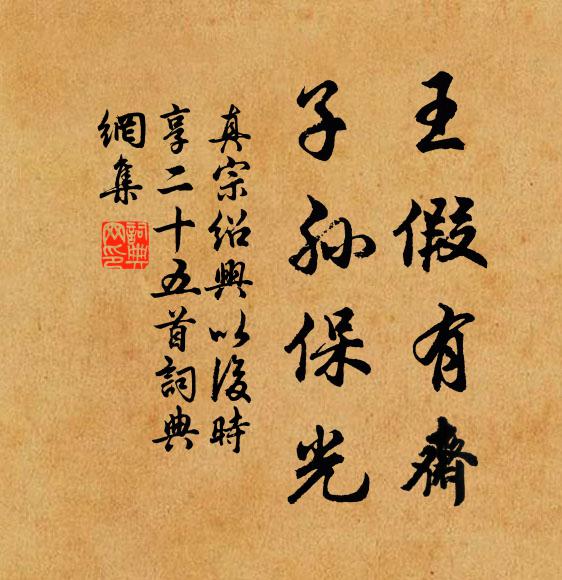 王假有齋
子孙保光
真宗绍興以後時
享二十五首詞典
網集
詞典
网印